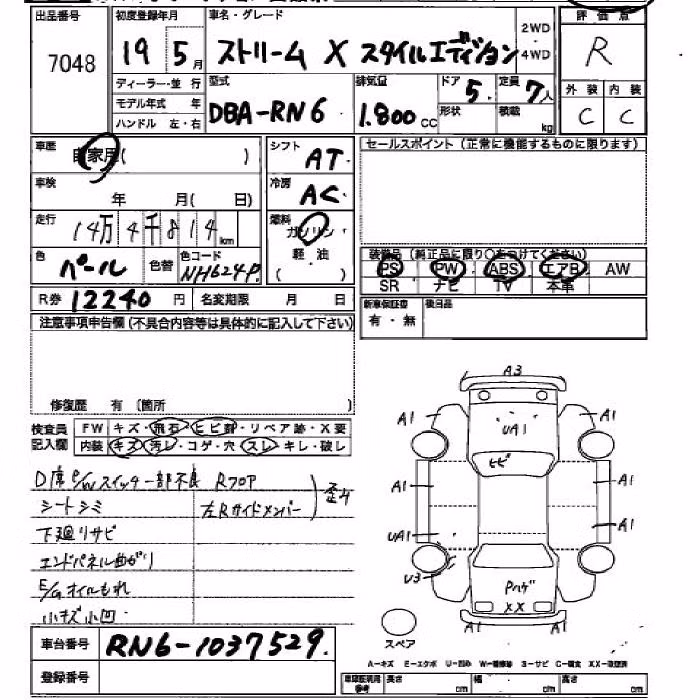 出品番号 7048
初度登録年月 19 5月
車名・グレード ストリーム X スタイルエディション
2WD・4WD
評価点 R
ディーラー・並行
モデル年式 年
ハンドル 左・右
型式 DBA-RN6
排気量 1.800cc
ドア 5
形状
定員 7人
積載 kg
外装 C
内装 C
車歴 自家用( )
シフト AT
車検 年 月( 日)
冷房 AC
走行 14万4千814km
燃料 ガソリン・軽・油 ( )
色 パール
色替
色コード NH624P.
R券 12240円
名変期限 月 日
セールスポイント(正常に機能するものに限ります)
装備品(純正品に限り○をつけてください)
PS PW ABS エアB AW
SR ナビ TV 本革
新車保証書 有・無
後日品
注意事項申告欄(不具合内容等は具体的に記入して下さい)
修復歴 有 (箇所 )
検査員記入欄
FW キズ・飛石・ヒビ割・リペア跡・X要
内装 キズ・汚レ・コゲ・穴・スレ・キレ・破レ
D席P/Wスイッチ一部不良
Rフロア
シートシミ
左Rサイドメンバー
歪み
下廻りサビ
エンドパネル曲がり
E/Gオイルもれ
小キズ小凹
車台番号 RN6-1037529.
登録番号
A3
A1
A1
UA1
ヒビ
A1
A1
UA1
A1
U3
Pハゲ
XX
A1
A1
スペア
A-キズ E-エクボ U-凹み W-補修跡 S-サビ C-腐食 XX-交換済
車庫証明用参考 長さ cm 幅 cm 高さ cm